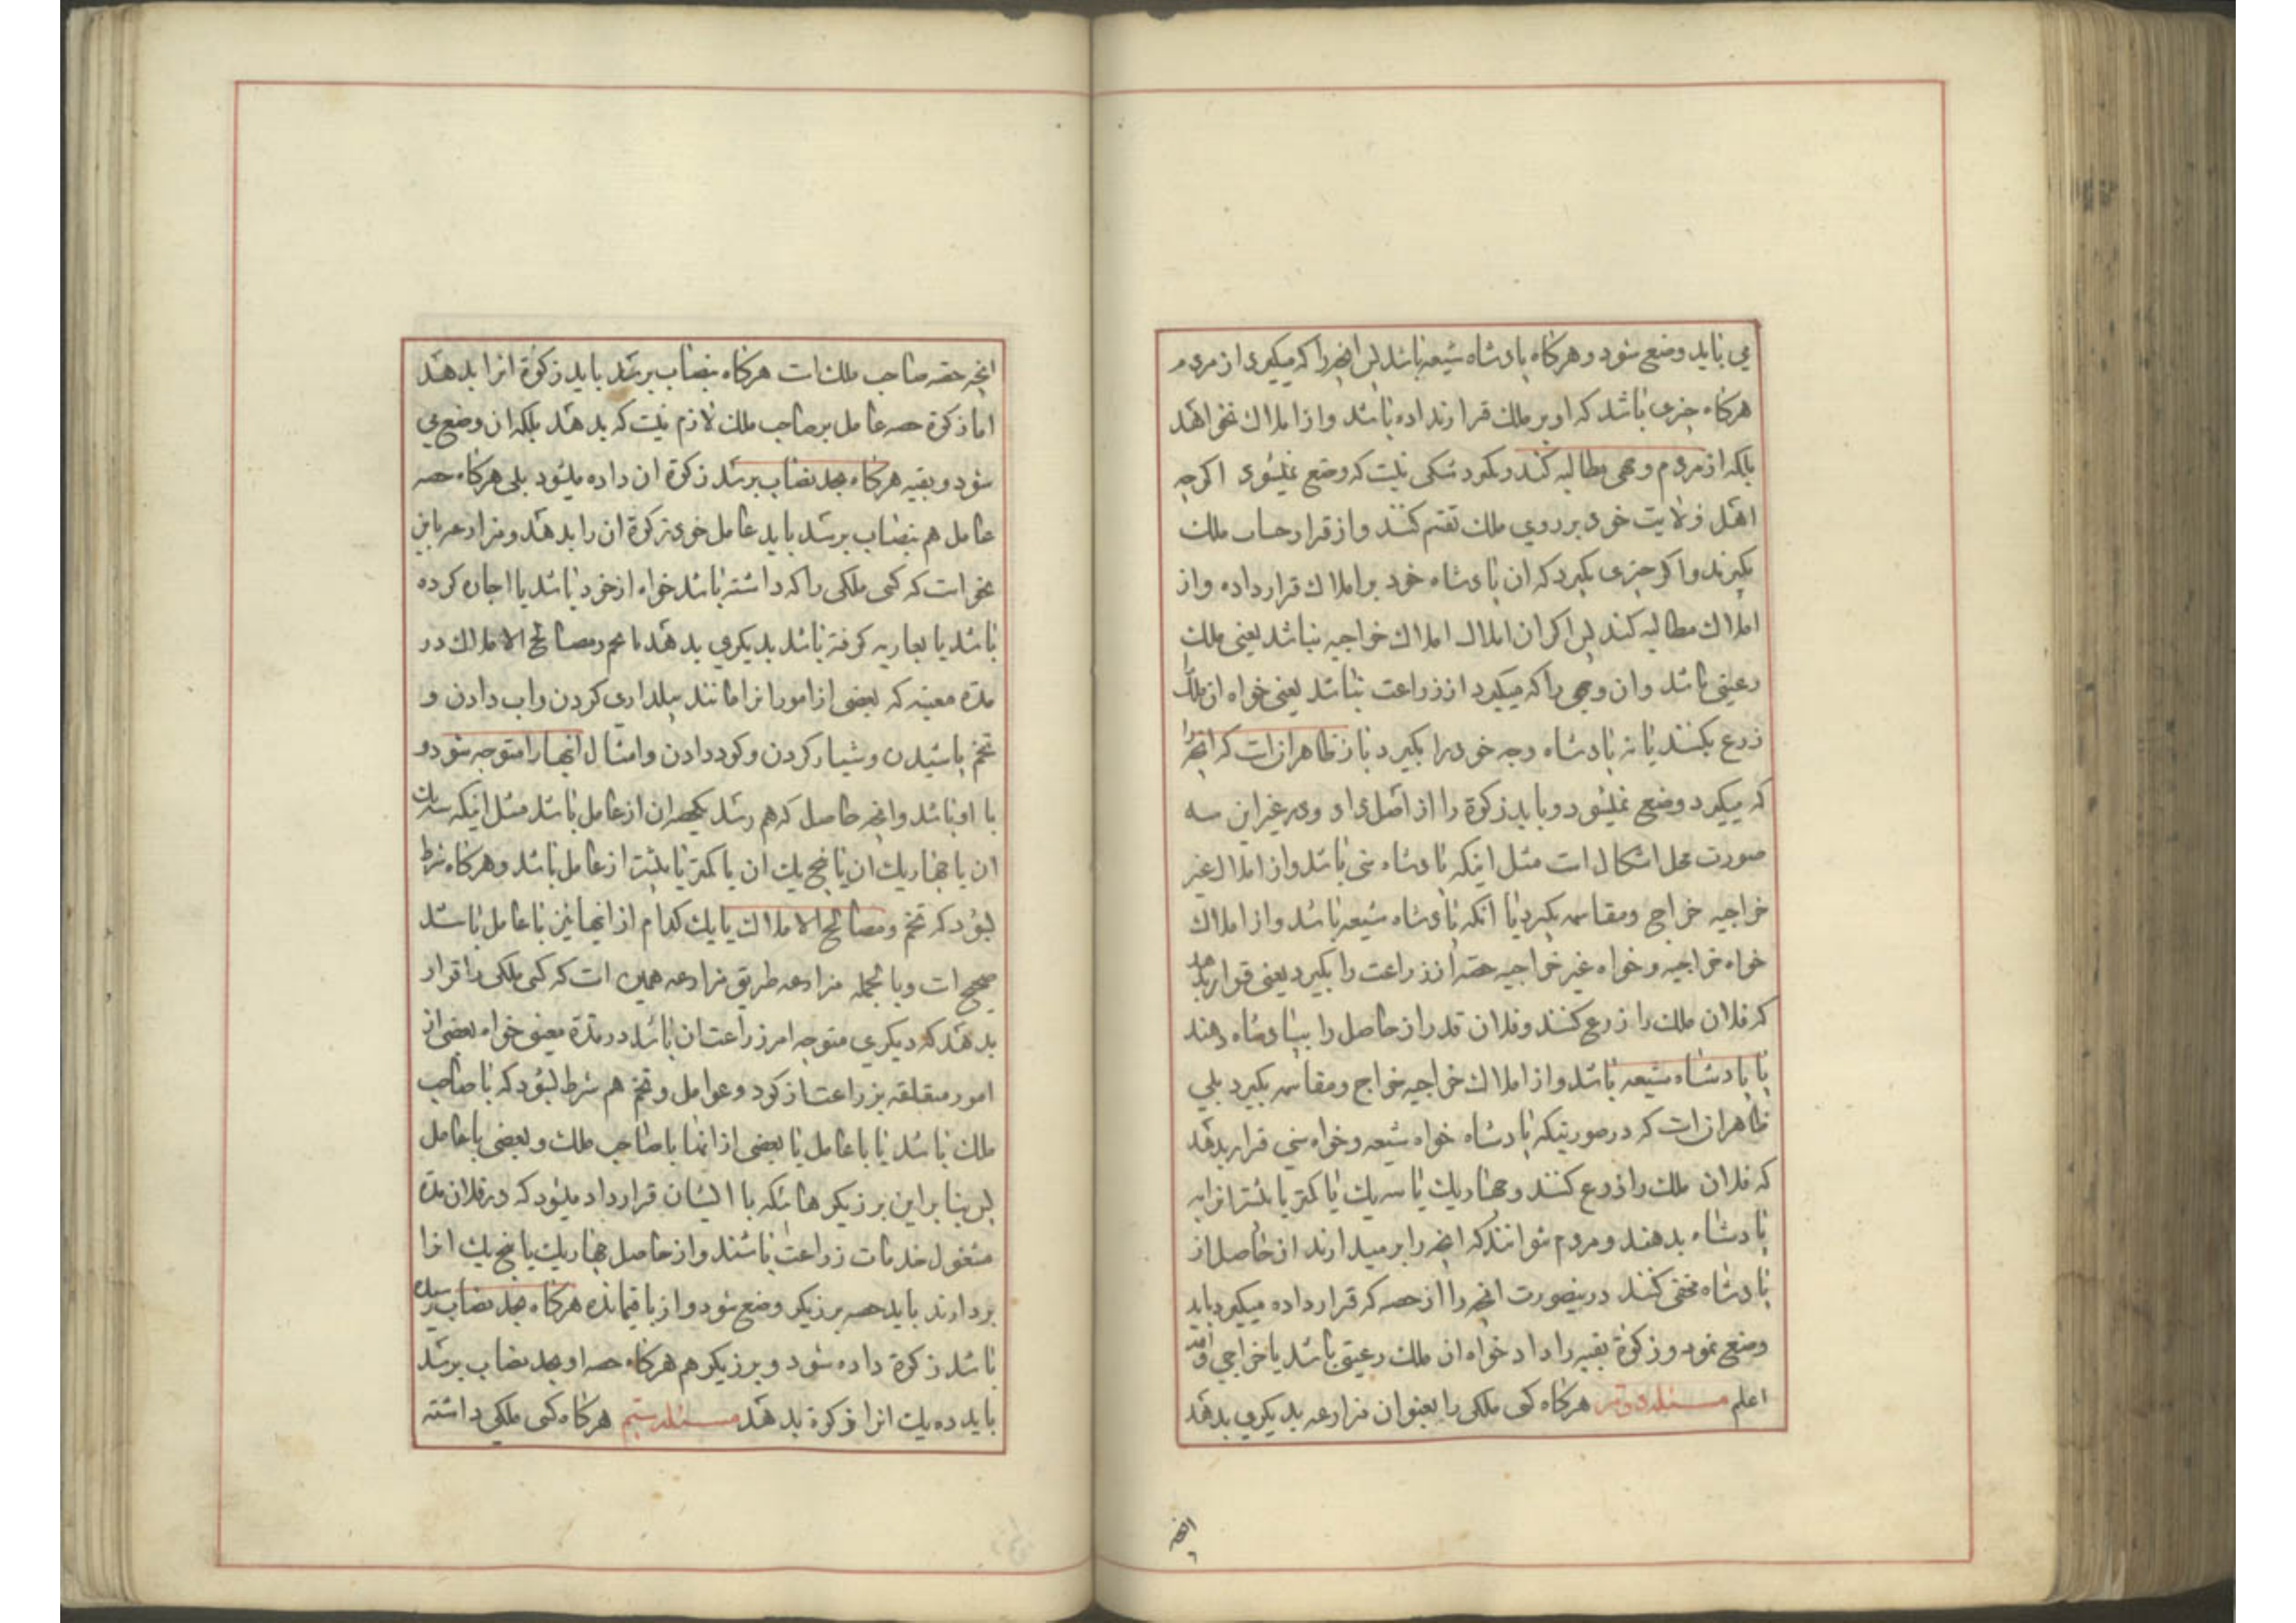 می باید وضع شود و هرکاه پادشاه شیعه باشد پس انچه را که میکیرد از مردم
هرکاه چیزی باشد که او بر ملک قرار نداده باشد و از املاک نخواهد
بلکه از مردم وجهی مطالبه کند و بکیرد شکی نیست که وضع نمیشود اکرچه
اهل ولایت خود بر روی ملک تقسیم کنند و از قرار حساب ملک
بکیرند و اکر چیزی بکیرد که ان پادشاه خود بر املاک قرار داده و از
املاک مطالبه کند پس اکر ان املاک املاک خراجیه نباشد یعنی ملک
رعیتی باشد و ان وجهی را که میکیرد از زراعت نباشد یعنی خواه ان ملک را
زرع بکنند یا نه پادشاه وجه خود را بکیرد باز ظاهر انست که انچه را
که میکیرد وضع نمیشود و باید زکوة را از اصل داد و در غیر این سه
صورت محل اشکال است مثل اینکه پادشاه سنی باشد و از املاک غیر
خراجیه خراج و مقاسمه بکیرد یا انکه پادشاه شیعه باشد و از املاک
خواه خراجیه و خواه غیر خراجیه حصه از زراعت را بکیرد یعنی قرار بدهد
که فلان ملک را زرع کنند و فلان قدر از حاصل را بپادشاه دهند
یا پادشاه شیعه باشد و از املاک خراجیه خراج و مقاسمه بکیرد بلی
ظاهر انست که در صورتیکه پادشاه خواه شیعه و خواه سنی قرار بدهد
که فلان ملک را زرع کنند و چهار یک یا سه یک یا کمتر یا بیشتر انرا به
پادشاه بدهند و مردم نتوانند که انچه را بر میدارند از حاصل از
پادشاه مخفی کنند در اینصورت انچه را از حصه که قرار داده میکیرد باید
وضع نمود و زکوة بقیه را داد خواه ان ملک رعیتی باشد یا خراجی و الله
اعلم مسئله هرکاه کسی ملکی را بعنوان مزارعه بدیکری بدهد
انچه
انچه حصه صاحب ملک است هرکاه بنصاب برسد باید زکوة انرا بدهد
اما زکوة حصه عامل بر صاحب ملک لازم نیست که بدهد بلکه ان وضع می
شود و بقیه هرکاه بحد نصاب برسد زکوة ان داده میشود بلی هرکاه حصه
عامل هم بنصاب برسد باید عامل خود زکوة ان را بدهد و مزارعه باین
نحو است که کسی ملکی را که داشته باشد خواه از خود باشد یا اجاره کرده
باشد یا بعاریه کرفته باشد بدیکری بدهد با تخم و مصالح الاملاک در
مدة معینه که بعضی از امور انرا مانند بیلداری کردن و اب دادن و
تخم پاشیدن و شیار کردن و کود دادن و امثال انها را متوجه شود و
با او باشد و انچه حاصل که بهم رسد یکحصه ان از عامل باشد مثل اینکه سه یک
ان یا چهار یک ان یا پنج یک ان یا کمتر یا بیشتر از عامل باشد و هرکاه شرط
بشود که تخم و مصالح الاملاک یا یک کدام از اینها نیز با عامل باشد
صحیح است و بالجمله مزارعه طریق مزارعه همین است که کسی ملکی را قرار
بدهد که دیکری متوجه امر زراعت ان باشد در مدة معین خواه بعضی از
امور متعلقه بزراعت از کود و عوامل و تخم هم شرط بشود که با صاحب
ملک باشد یا با عامل یا بعضی از انها با صاحب ملک و بعضی با عامل
پس بنابراین برزیکرهائیکه با ایشان قرارداد میشود که در فلان مدة
مشغول خدمات زراعت باشند و از حاصل چهار یک یا پنج یک انرا
بردارند باید حصه برزیکر وضع شود و از باقیمانده هرکاه بحد نصاب رسیده
باشد زکوة داده شود و برزیکر هم هرکاه حصه او بحد نصاب برسد
باید ده یک انرا زکوة بدهد مسئله هرکاه کسی ملکی داشته